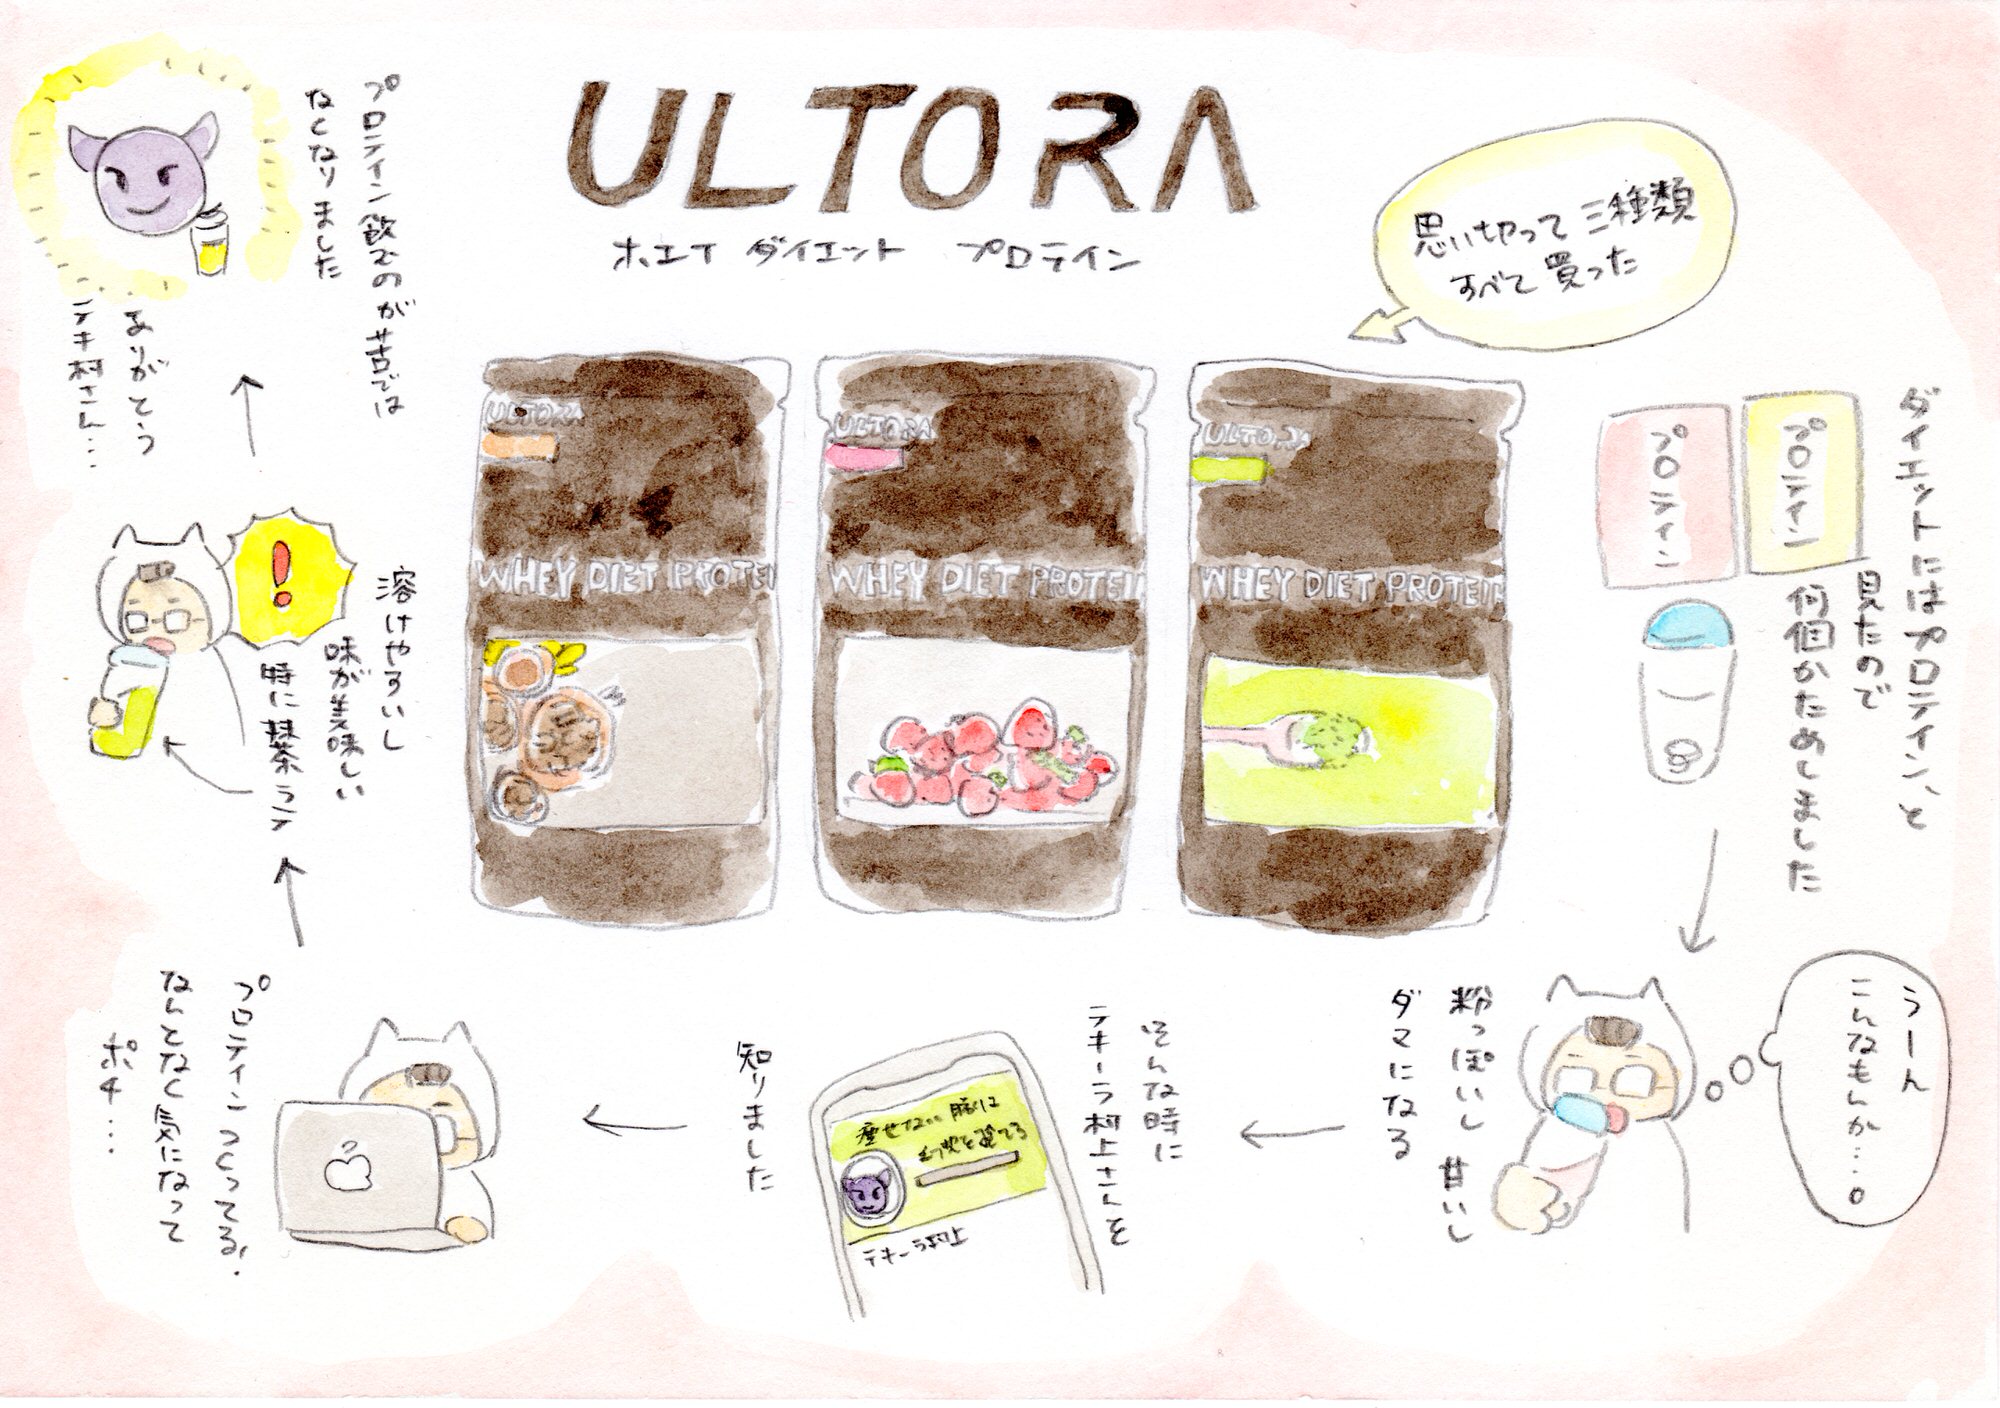 ULTORA
ホエイ ダイエット プロテイン
思い切って三種類
すべて買った
ダイエットにはプロテイン、と
見たので
何個かためしました
プロテイン
プロテイン
うーん
こんなもんか…。
粉っぽいし 甘いし
ダマになる
そんな時に
テキーラ村上さんを
知りました
痩せない豚は
テキーラ村上
プロテインつくってる!
なんとなく気になって
ポチ…
溶けやすいし
味が美味しい
特に抹茶ラテ
!
プロテイン飲むのが苦では
なくなりました
ありがとう
テキ村さん…
ULTORA
WHEY DIET PROTEI
ULTORA
WHEY DIET PROTEIN
ULTORA
WHEY DIET PROTEIN